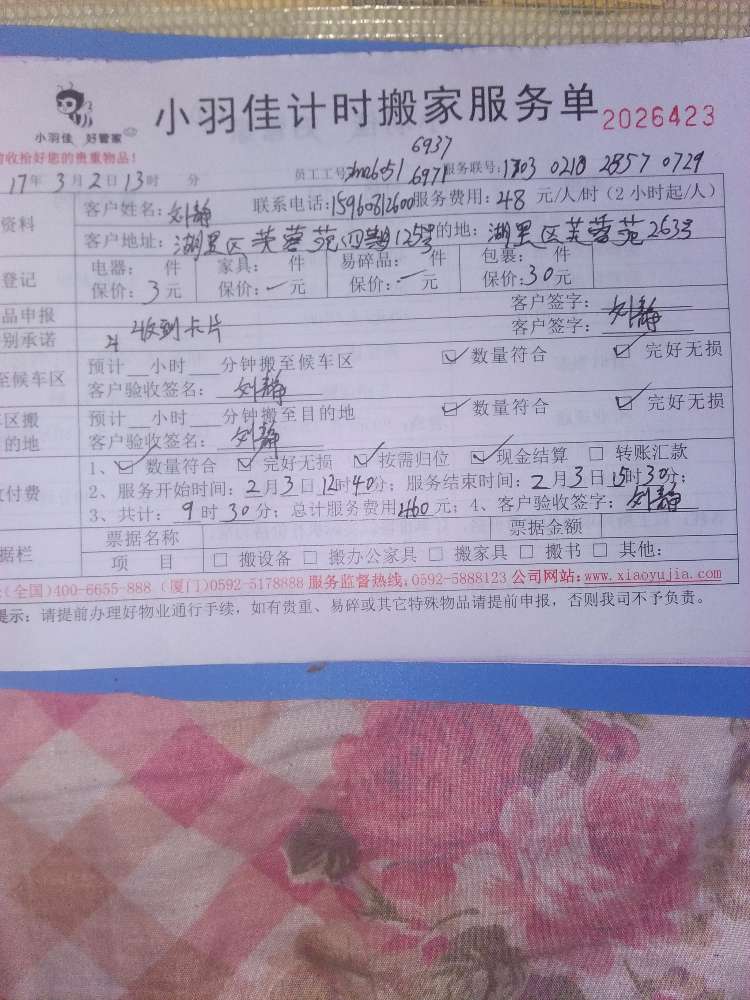 小羽佳 好管家
小羽佳计时搬家服务单 2026423
收拾好您的贵重物品!
6937
17年3月2日13时 分 员工工号: 6971 服务联号: 1703 0218 2857 0729
资料 客户姓名: 刘静 联系电话: 15960812600 服务费用: 48 元/人/时(2小时起/人)
客户地址: 湖里区芙蓉苑四期125号 的地: 湖里区芙蓉苑263号
登记 电器: 件 家具: 件 易碎品: 件 包裹: 件
保价: 3元 保价: 一元 保价: 一元 保价: 30元
品申报 客户签字: 刘静
别承诺 收到卡片 客户签字:
至候车区 预计__小时__分钟搬至候车区 ☑ 数量符合 ☑ 完好无损
客户验收签名: 刘静
区搬 预计__小时__分钟搬至目的地 ☑ 数量符合 ☑ 完好无损
的地 客户验收签名: 刘静
1、☑ 数量符合 ☑ 完好无损 ☑ 按需归位 ☑ 现金结算 □ 转账汇款
付费 2、服务开始时间: 2月3日12时40分; 服务结束时间: 2月3日15时30分;
3、共计: 9时30分; 总计服务费用460元; 4、客户验收签字: 刘静
据栏 票据名称 票据金额
项 目 □ 搬设备 □ 搬办公家具 □ 搬家具 □ 搬书 □ 其他:
(全国)400-6655-888 (厦门)0592-5178888 服务监督热线: 0592-5888123 公司网站: www.xiaoyujia.com
提示: 请提前办理好物业通行手续, 如有贵重、易碎或其它特殊物品请提前申报, 否则我司不予负责。